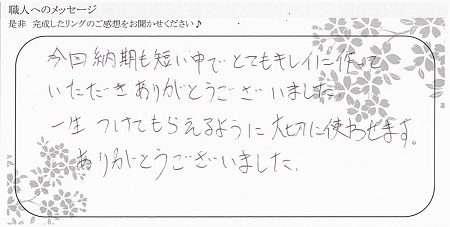 職人へのメッセージ
是非 完成したリングのご感想をお聞かせください♪
今回納期も短い中でとてもキレイに作って
いただきありがとうございました。
一生つけてもらえるように大切に使わせます。
ありがとうございました。